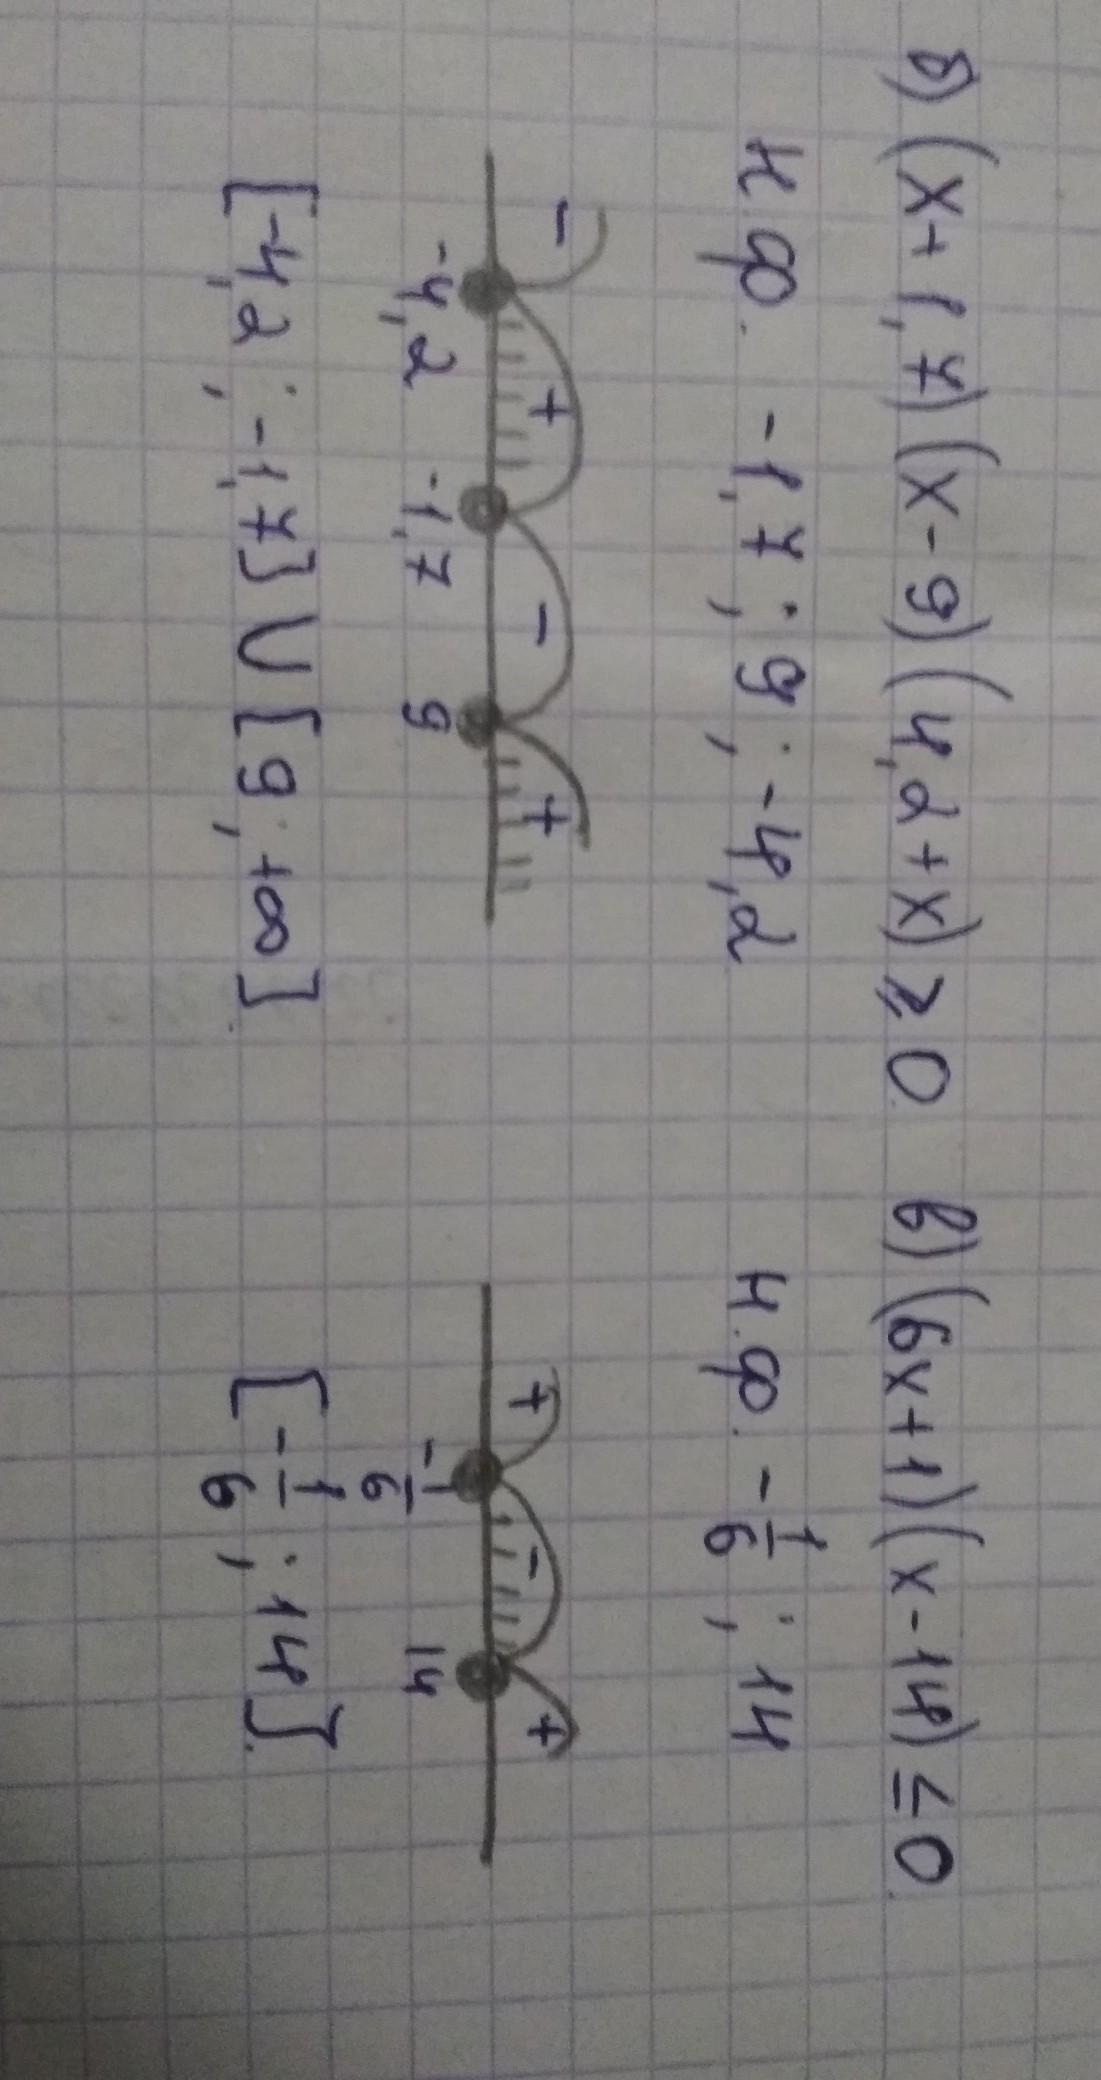 б) (x+1,7)(x-9)(4,2+x)⩾0
н.ф. -1,7; 9; -4,2
- + - +
-4,2 -1,7 9
[-4,2; -1,7]∪[9; +∞]
в) (6x+1)(x-14)≤0
н.ф. -1/6; 14
+ - +
-1/6 14
[-1/6; 14].